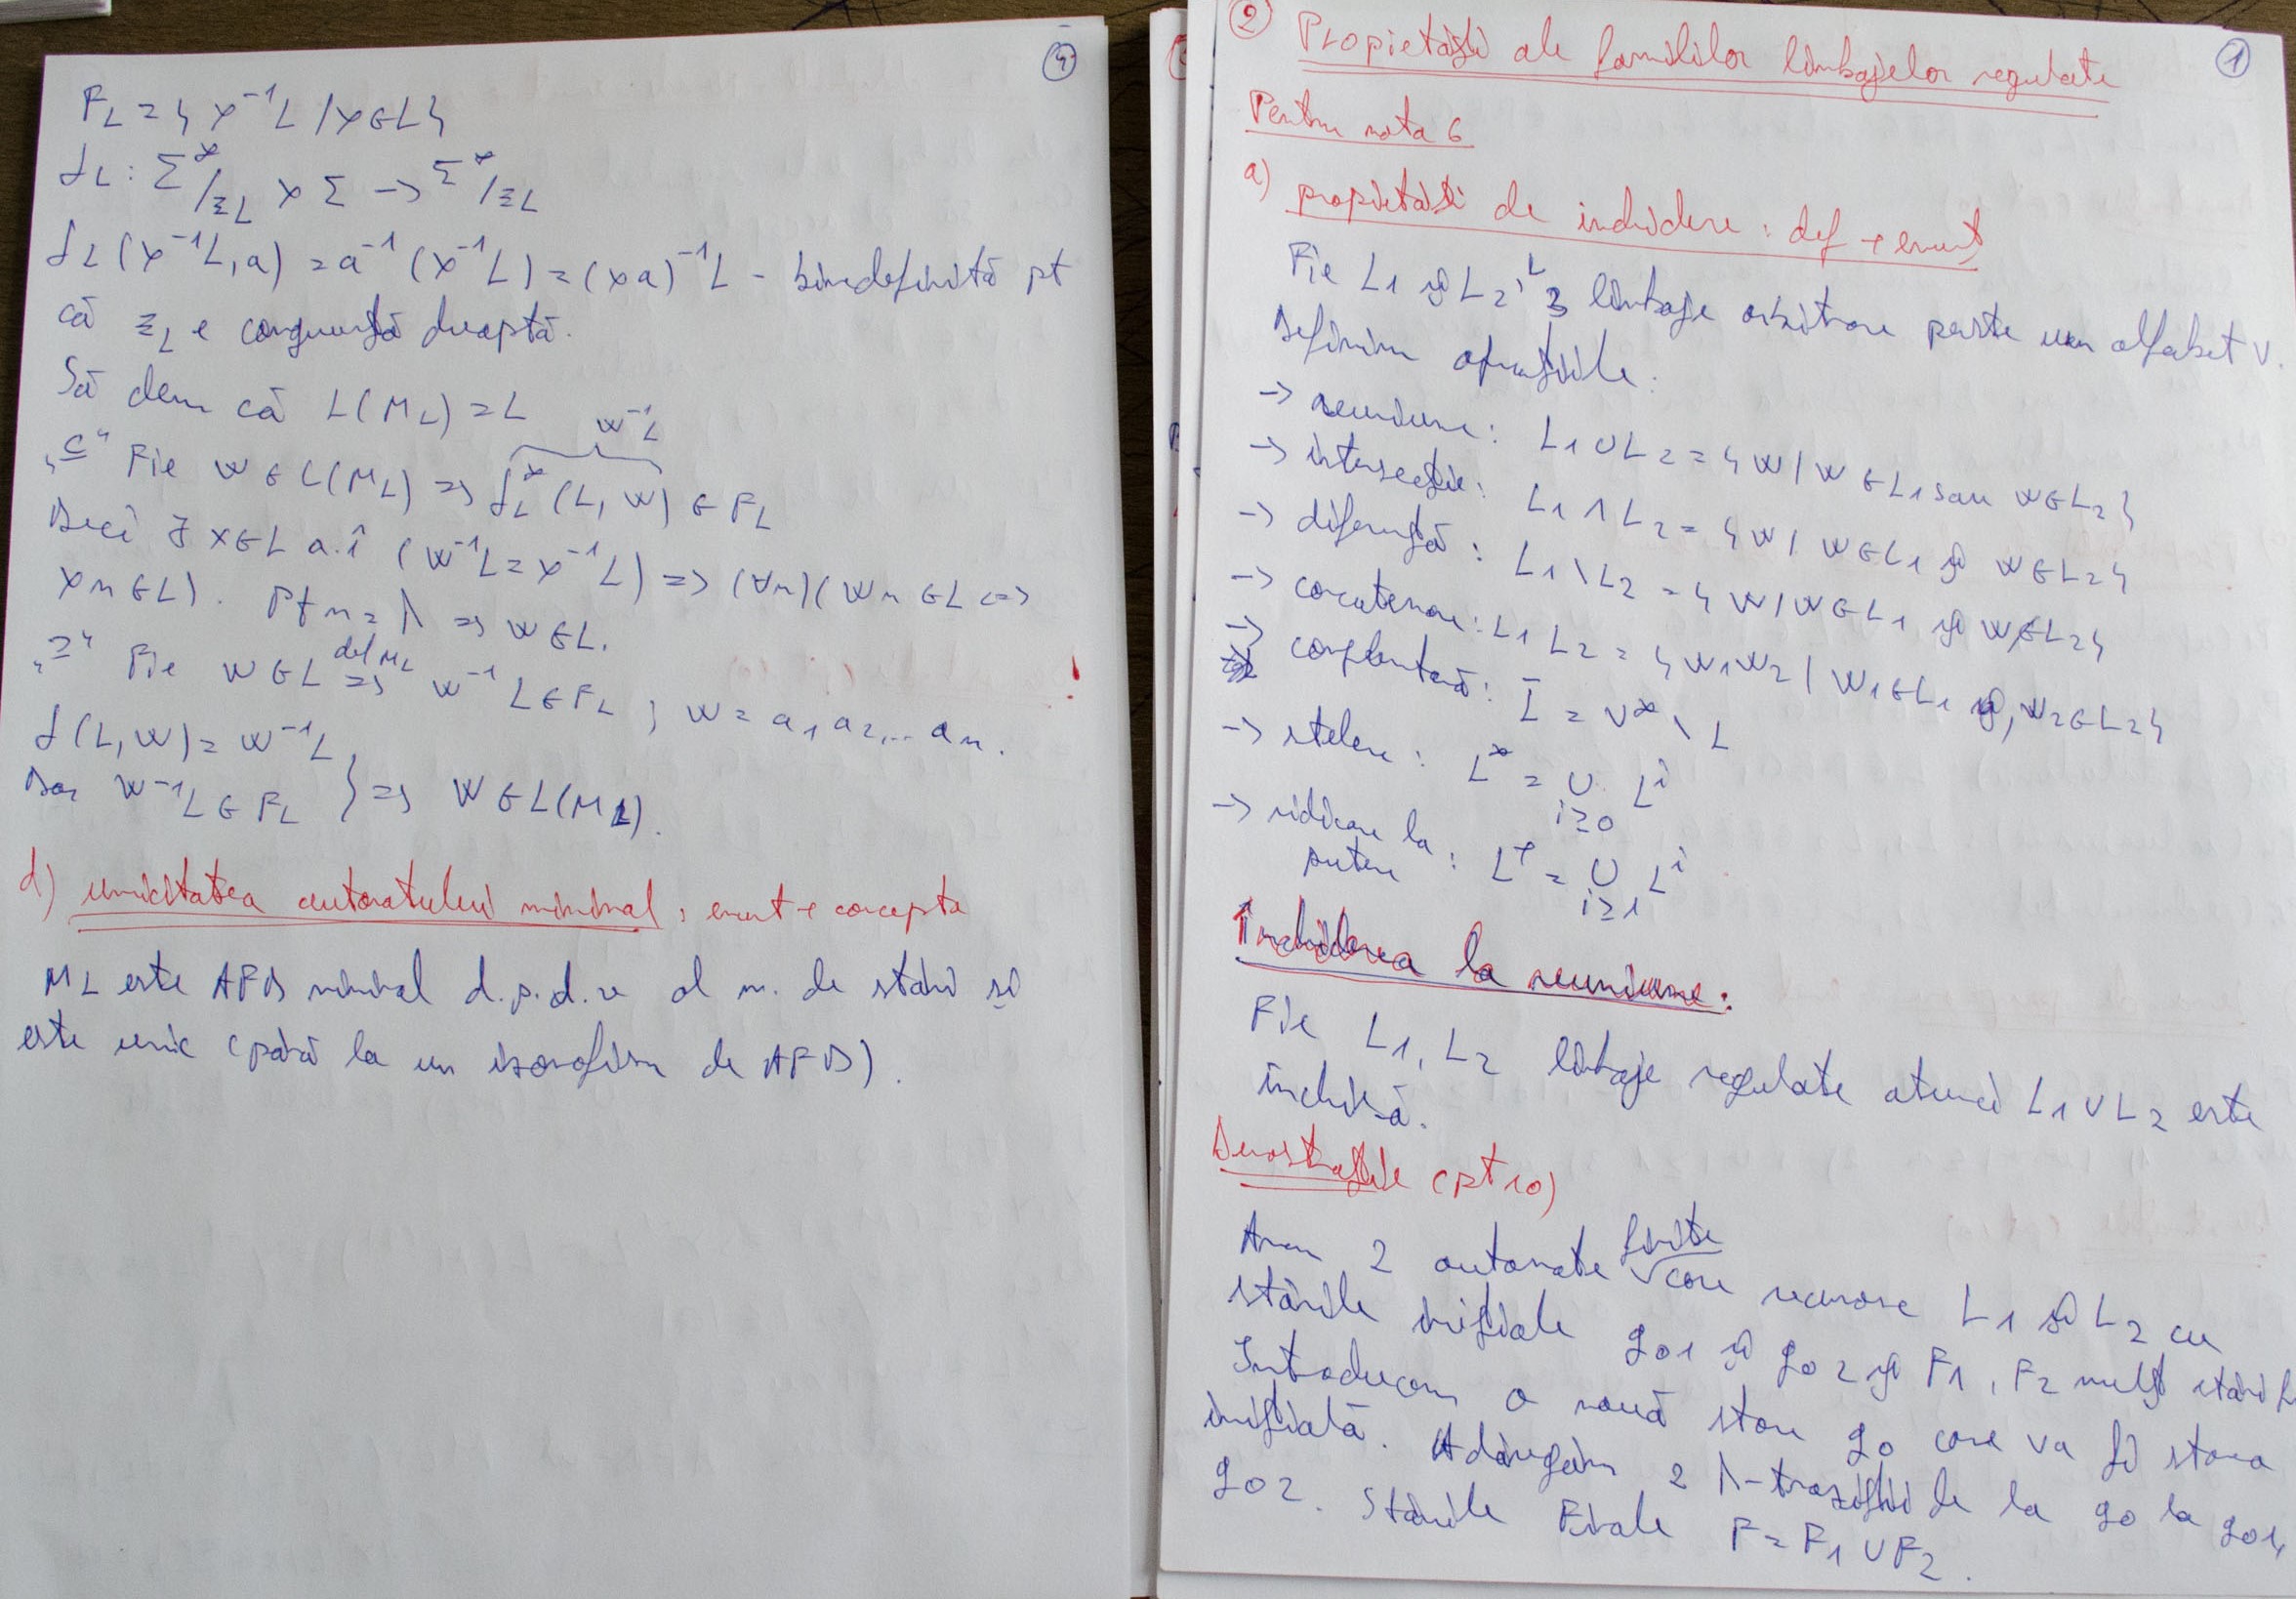 4
F_L = { x⁻¹L / x ∈ L }
δ_L : Σ*/≡_L × Σ → Σ*/≡_L
δ_L (x⁻¹L, a) = a⁻¹ (x⁻¹L) = (xa)⁻¹L - binedefinită pt
că ≡_L e congruență dreaptă.
Să dem că L(M_L) = L
w⁻¹L
„⊆" Fie w ∈ L(M_L) => δ_L* (L, w) ∈ F_L
Deci ∃ x ∈ L a.î (w⁻¹L = x⁻¹L) => (∀u)(wu ∈ L <=>
xu ∈ L). Pt u = λ => w ∈ L.
„⊇" Fie w ∈ L =>(def M_L) w⁻¹L ∈ F_L ; w = a₁a₂...aₙ. !
δ(L, w) = w⁻¹L
Dar w⁻¹L ∈ F_L } => w ∈ L(M_L).
d) unicitatea automatului minimal : enunt + concepte
M_L este AFD minimal d.p.d.v al nr. de stări și
este unic (până la un izomofism de AFD).
2 Propietăți ale familiilor limbajelor regulate 1
Pentru nota 6
a) propietăți de inchidere : def + enunț
Fie L1 și L2, L 3 limbaje arbitrare peste un alfabet V.
Definim operațiile:
-> reuniune: L1 ∪ L2 = { w / w ∈ L1 sau w ∈ L2 }
-> intersecție: L1 ∩ L2 = { w / w ∈ L1 și w ∈ L2 }
-> diferență: L1 \ L2 = { w / w ∈ L1 și w ∉ L2 }
-> concatenare: L1 L2 = { w1w2 / w1 ∈ L1 și w2 ∈ L2 }
-> complementară: L̄ = V* \ L
-> stelare: L* = ∪ Lⁱ
i≥0
-> ridicare la
putere : L⁺ = ∪ Lⁱ
i≥1
Închiderea la reuniune:
Fie L1, L2 limbaje regulate atunci L1 ∪ L2 este
închisă.
Demostrațiile (pt 10)
finite
Avem 2 automate √ care recunosc L1 și L2 cu
stările inițiale q01 și q02 și F1, F2 mulț stări
Introducem o nouă stare q0 care va fi starea
inițială. Adăugăm 2 λ-tranziții de la q0 la q01,
q02. Stările Finale F = F1 ∪ F2.